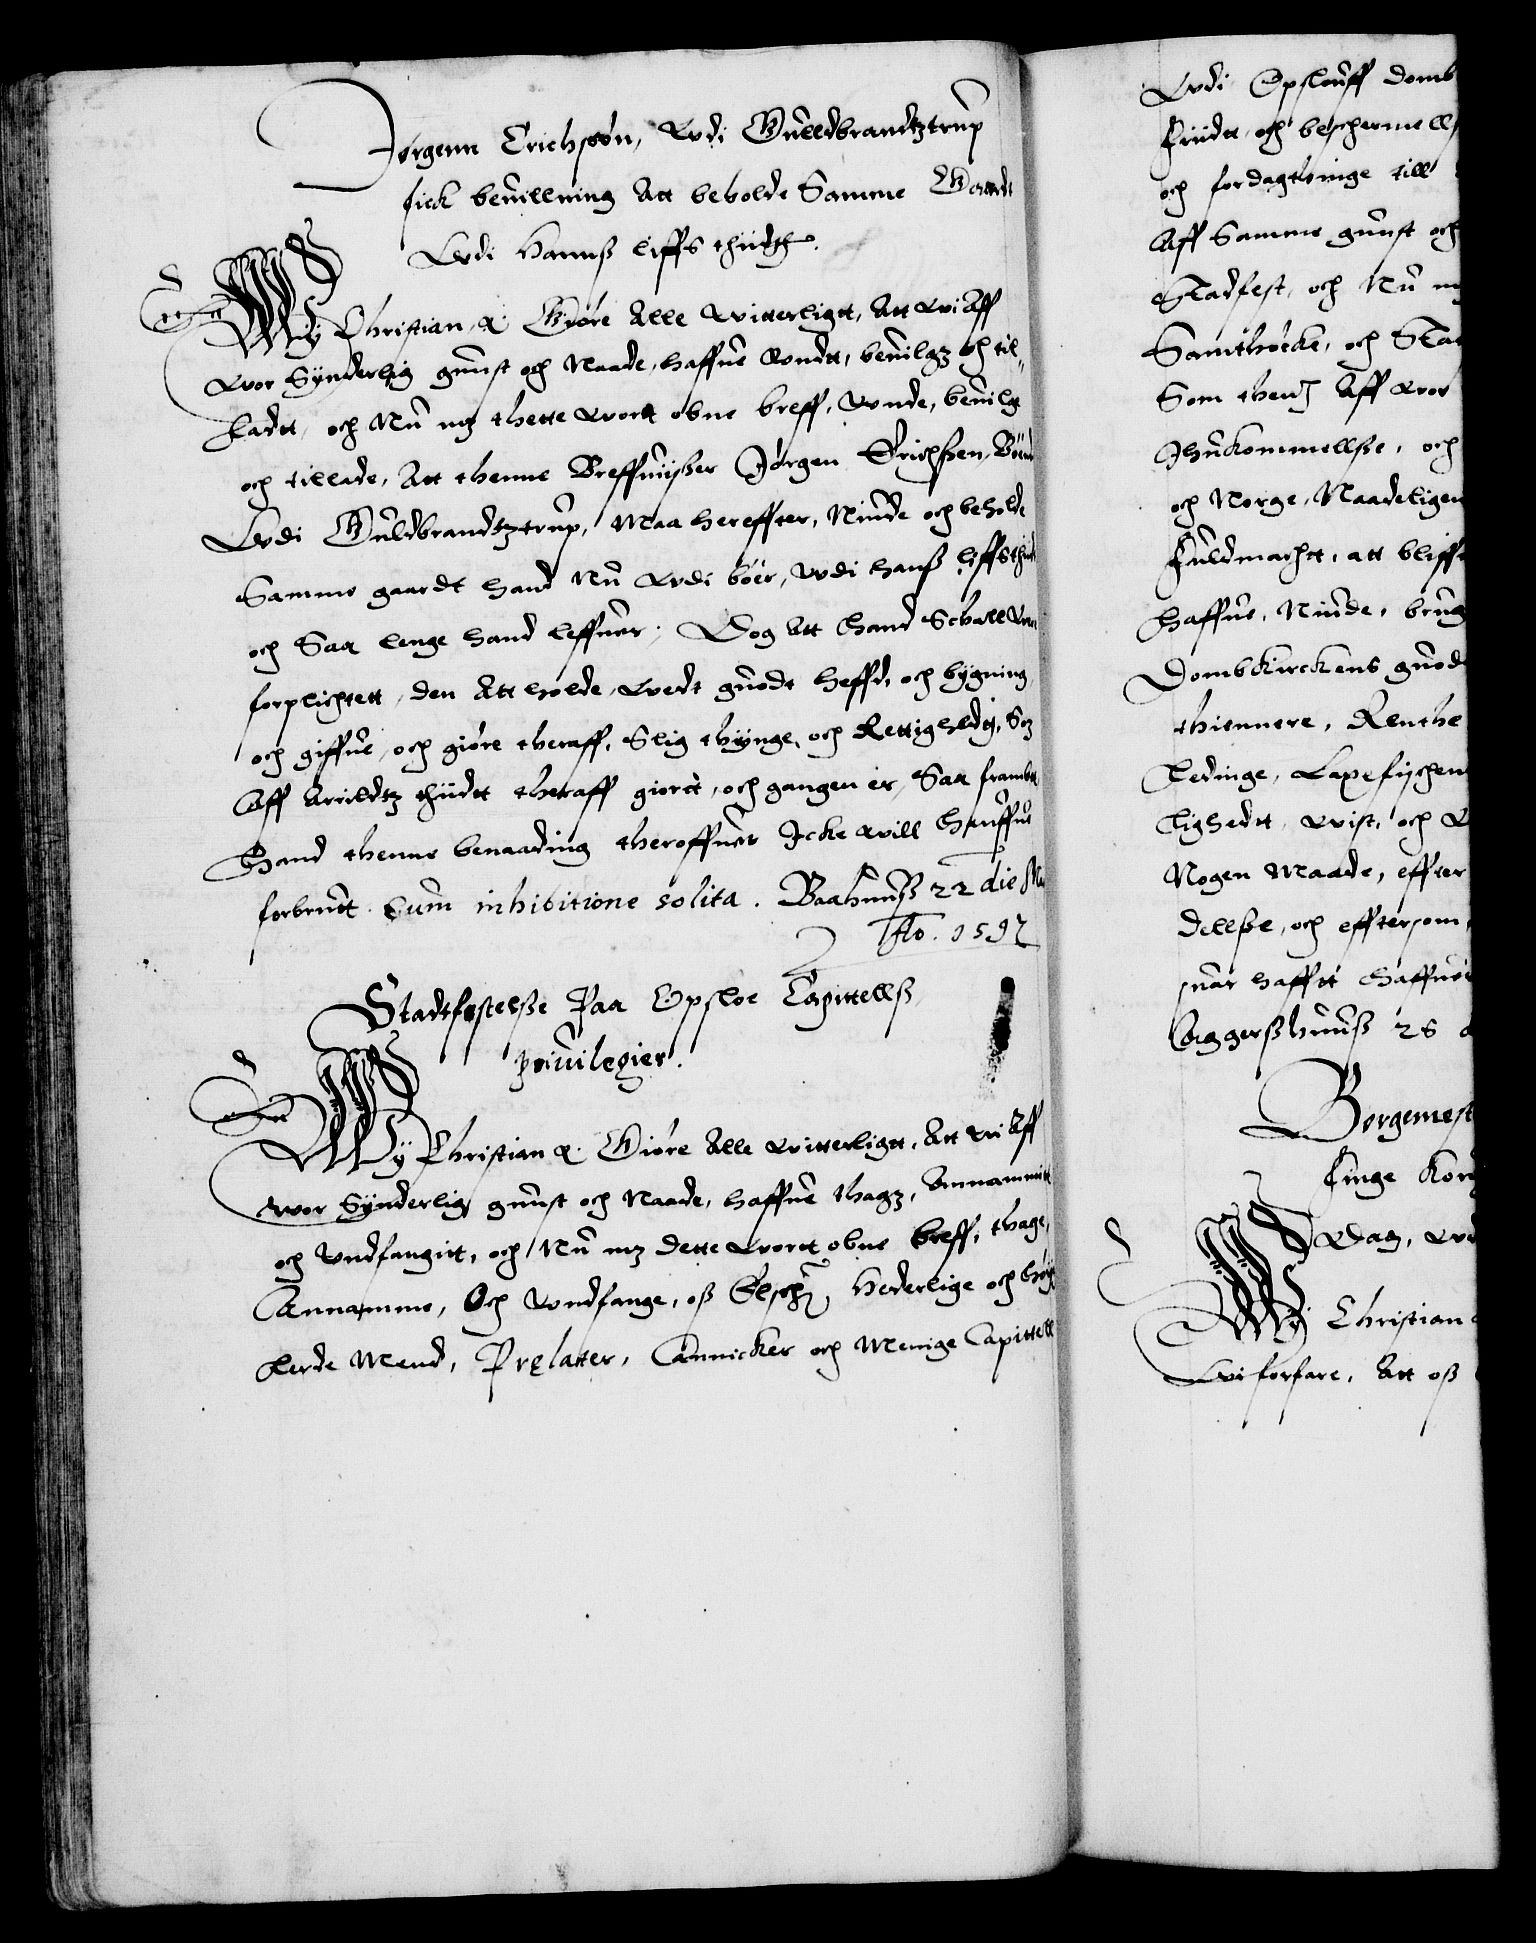 Jørgenn Erichsøn, Wdi Gulldbrandtztrup
fick bevillning Att beholde Samme Gaardt
Wdi hanns liffs thiidt.
Wy Christian, &. Giøre Alle witterligt, Att wi Aff
wor Synderlig gunst och Naade, haffue Wndt, beuilgz och til-
ladt, och Nu mz thette wortt obne breff, Wnde, beuilge
och tillade, Att thenne Breffuiißer Jørgen Erichßen,
Wdi Guldbrandtztrup, Maa hereffter, Niude och beholde
Samme gaardt hand Nu Wdi boer, Wdi hanß liffsthiid
och Saa lenge hand leffuer; Dog Att hand Schall were
forplichtett, den Att holde, wedt guodt heffd, och bygning
och giffue, och giøre theraff, Slig thynge, och Rettighedtj, Som
Aff Arrildtz thiidtt theraff giortt, och gangen er, Saa frambt
Hand thenne benaading theroffuer Icke will haffue
forbrutt. Cum inhibitione solita. Baahuuß 22 die
Ao. 1597
Stadtfestelße Paa Opsloe Capittellß
privilegier.
Wy Christian &. Giøre Alle witterligtt, Att wi Aff
wor Synderlig gunst och Naade, haffue thagz, Annammitt
och Undfangitt, och Nu mz dette wortt obne breff, thage,
Annamme, Och Wndfange, oß Elsche, Hederlige och høig-
lerde Mend, Prelatter, Cannicker och Menige Capittell
Wdi Opslouff domb
friidtt och beschermells
och fordagthinge till
Aff Samme gunst och
Stadfest, och Nu m
Samthøcke, och Stad
Som thenj Aff wor
Ihukommellße, och
och Norge, Naadeligen
fuldmachtt, att bliffe
haffue, Niude, brug
Dombkirckens guod
thiennere, Renthe
Ledinge, Laxefischeri
lighedtt, wist, och
Nogen Maade, effter
dellße, och efftersom
suar hafftt haffuer
Aggerßhuuß 26
Borgemest
finge Kong
Wdaz, wd
Wy Christian
Wi forfare, Att oß